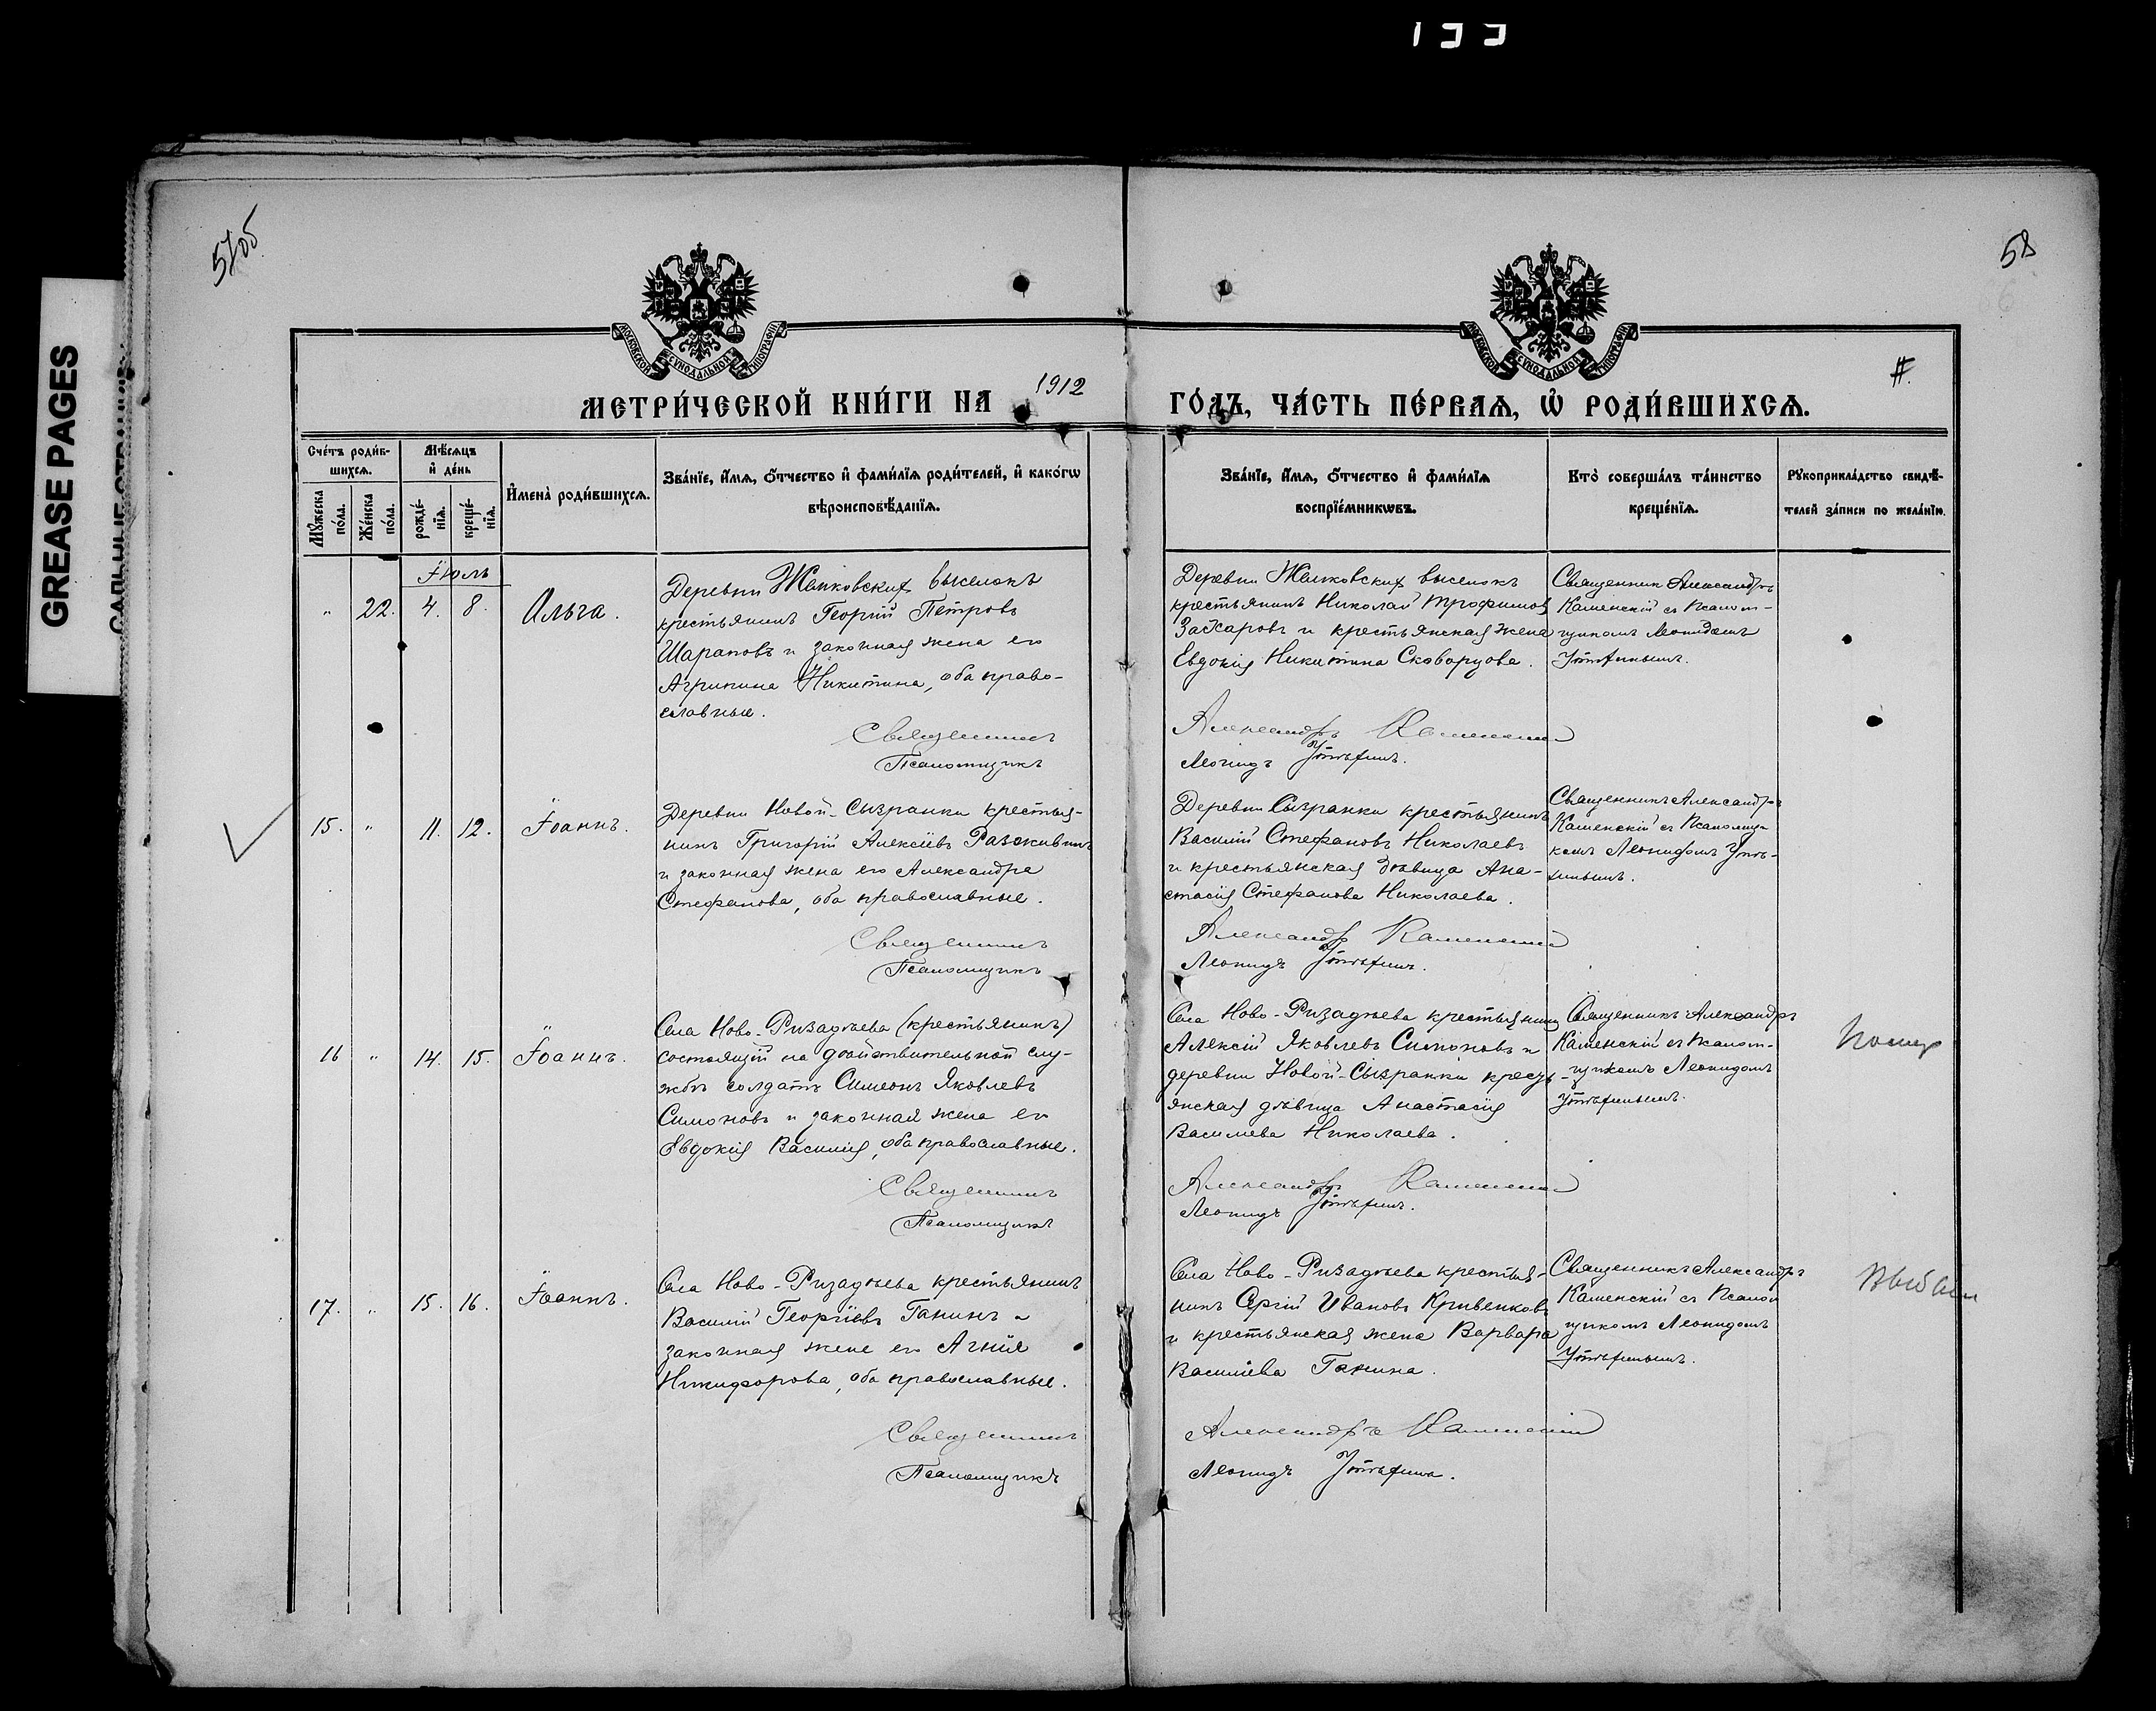 133
GREASE PAGES
57 об
58
МОСКОВСКОЙ СУНОДАЛЬНОЙ ТИПОГРАФІИ
МОСКОВСКОЙ СУНОДАЛЬНОЙ ТИПОГРАФІИ
МЕТРИ́ЧЕСКОЙ КНИ́ГИ НА 1912 ГО́ДЪ, ЧА́СТЬ ПЕ́РВАѦ, Ѡ РОДИ́ВШИХСѦ.
Сче́тъ роди́в-
шихсѧ.
Мѣ́сѧцъ
и де́нь
Мꙋ́жеска
по́ла.
Же́нска
по́ла.
рожде́-
нїѧ.
креще́-
нїѧ.
Имена̀ роди́вшихсѧ.
Зва́нїе, и́мѧ, ѻ́тчество и фами́лїѧ роди́телей, и како́гѡ
вѣроисповѣ́данїѧ.
Зва́нїе, и́мѧ, ѻ́тчество и фами́лїѧ
воспрїе́мникѡвъ.
Кто̀ соверша́лъ та́инство
креще́нїѧ.
Рꙋкоприкла́дство свидѣ́-
телей за́писи по жела́нїю.
Іюль
" 22. 4. 8. Ольга.
Деревни выселокъ
крестьянинъ Георгій Петровъ
Шараповъ и законная жена его
Агрипина Никитина, оба право-
славные.
Священникъ
Псаломщикъ
Деревни выселокъ
крестьянинъ Николай Трофимовъ
Захаровъ и крестьянская жена
Евдокія Никитина Скворцова.
Александръ Каменскій
Леонидъ
Священник Александръ
Каменскій съ Псалом-
щикомъ Леонидомъ
15. " 11. 12. Іоаннъ.
Деревни Новой-Сызранки крестья-
нинъ Григорій Алексіевъ
и законная жена его Александра
Стефанова, оба православные.
Священникъ
Псаломщикъ
Деревни Сызранки крестьянинъ
Василій Стефановъ Николаевъ
и крестьянская дѣвица Ана-
стасія Стефанова Николаева.
Александръ Каменскій
Леонидъ
Священникъ Александръ
Каменскій съ Псаломщи-
комъ Леонидомъ
16 " 14. 15. Іоаннъ.
Села Ново-Ризадѣева (крестьянинъ)
состоящій на дѣйствительной слу-
жбѣ солдатъ Симеонъ Яковлевъ
Симоновъ и законная жена его
Евдокія Василія, оба православные.
Священникъ
Псаломщикъ
Села Ново-Ризадѣева крестьянинъ
Алексій Яковлевъ Симоновъ и
деревни Новой-Сызранки кресть-
янская дѣвица Анастасія
Василиева Николаева.
Александръ Каменскій
Леонидъ
Священникъ Александръ
Каменскій съ Псалом-
щикомъ Леонидомъ
17. " 15. 16. Іоаннъ.
Села Ново-Ризадѣева крестьянинъ
Василій Георгіевъ Ганинъ и
законная жена его Агнія
Никифорова, оба православные.
Священникъ
Псаломщикъ
Села Ново-Ризадѣева крестья-
нинъ Сергій Ивановъ Кривенковъ
и крестьянская жена Варвара
Василіева Ганина.
Александръ Каменскій
Леонидъ
Священникъ Александръ
Каменскій съ Псалом
щикомъ Леонидомъ